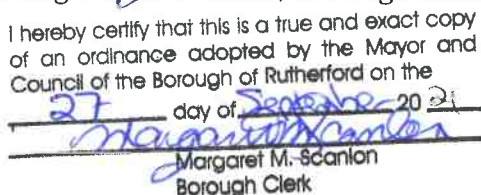 I hereby certify that this is a true and exact copy
of an ordinance adopted by the Mayor and
Council of the Borough of Rutherford on the
27 day of September 20 21
Margaret M. Scanlon
Margaret M. Scanlon
Borough Clerk